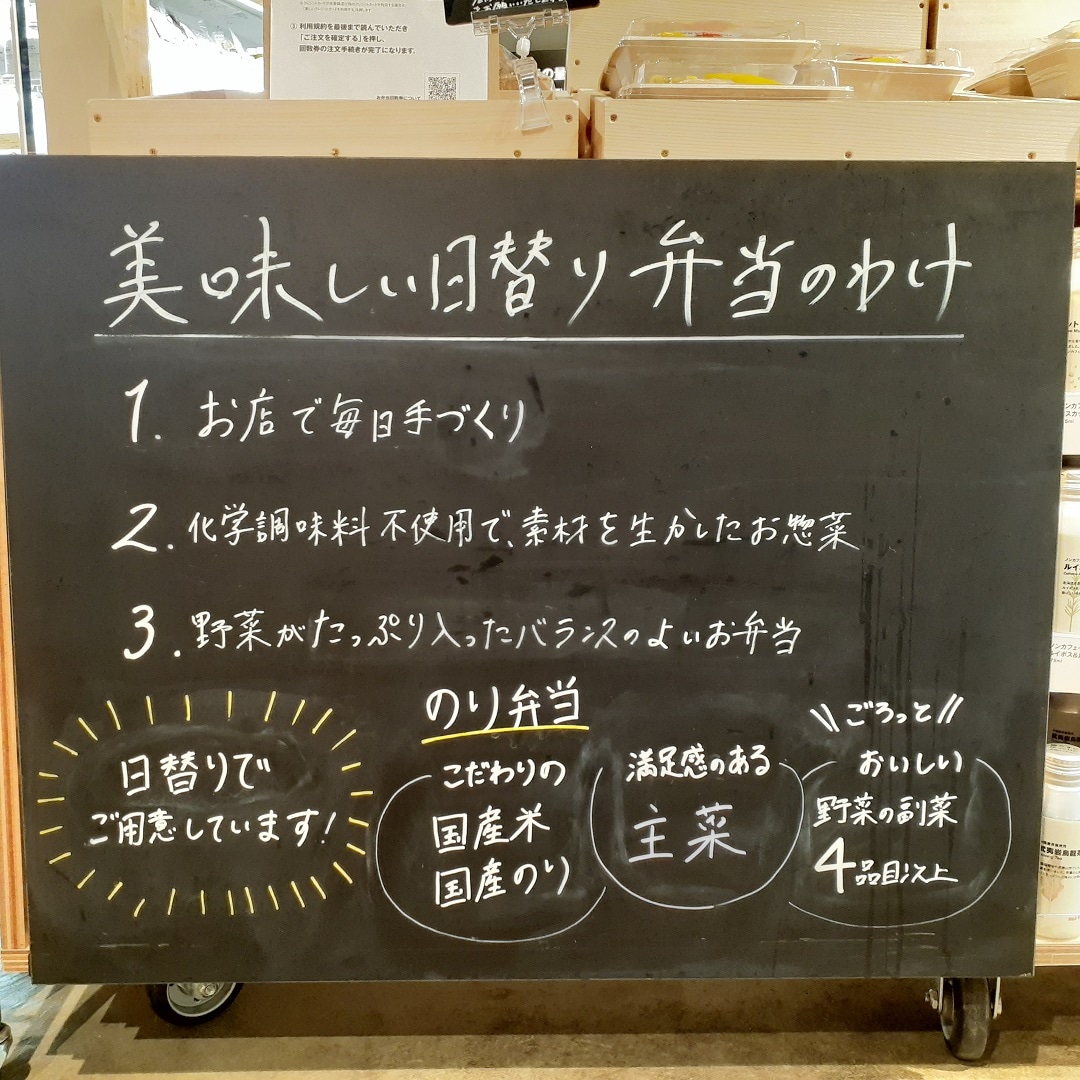 ③ 利用規約を最後まで読んでいただき
「ご注文を確定する」を押し、
回数券の注文手続きが完了になります。
美味しい日替り弁当のわけ
1. お店で毎日手づくり
2. 化学調味料不使用で、素材を生かしたお惣菜
3. 野菜がたっぷり入ったバランスのよいお弁当
日替りで
ご用意しています!
のり弁当
こだわりの
国産米
国産のり
満足感のある
主菜
\\ごろっと//
おいしい
野菜の副菜
4品目以上